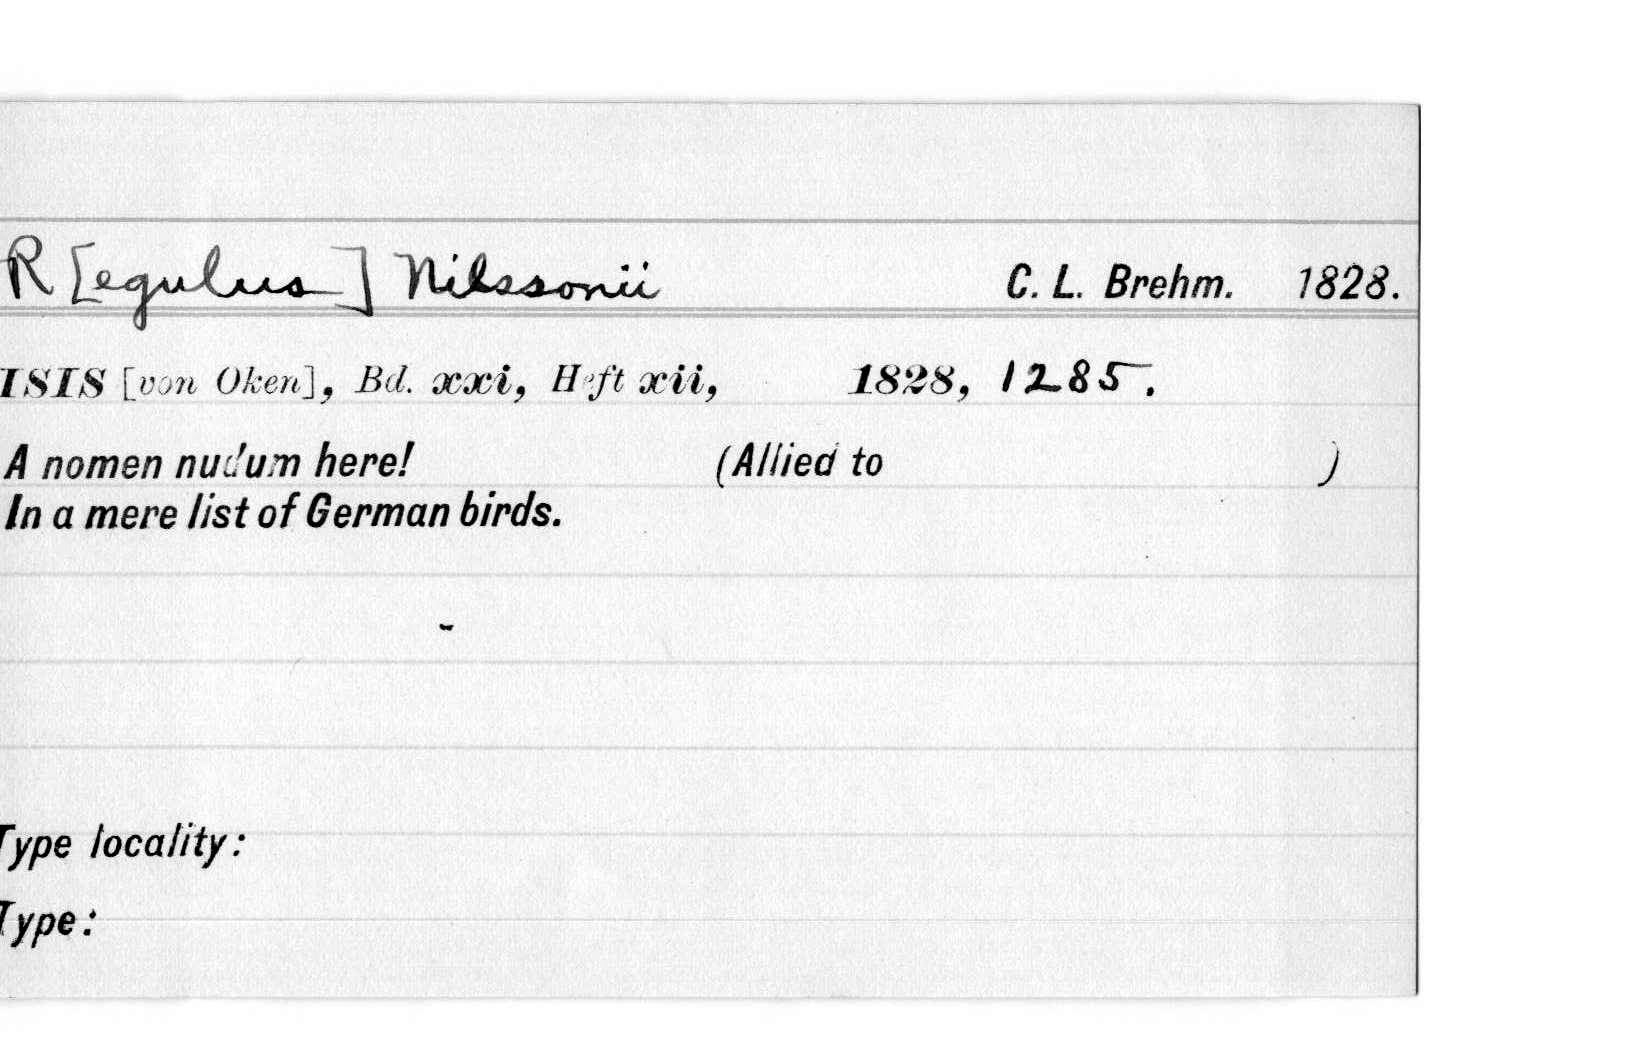 R[egulus] Nilssonii C. L. Brehm. 1828.
ISIS [von Oken], Bd. xxi, Heft xii, 1828, 1285.
A nomen nudum here! (Allied to )
In a mere list of German birds.
Type locality:
Type: